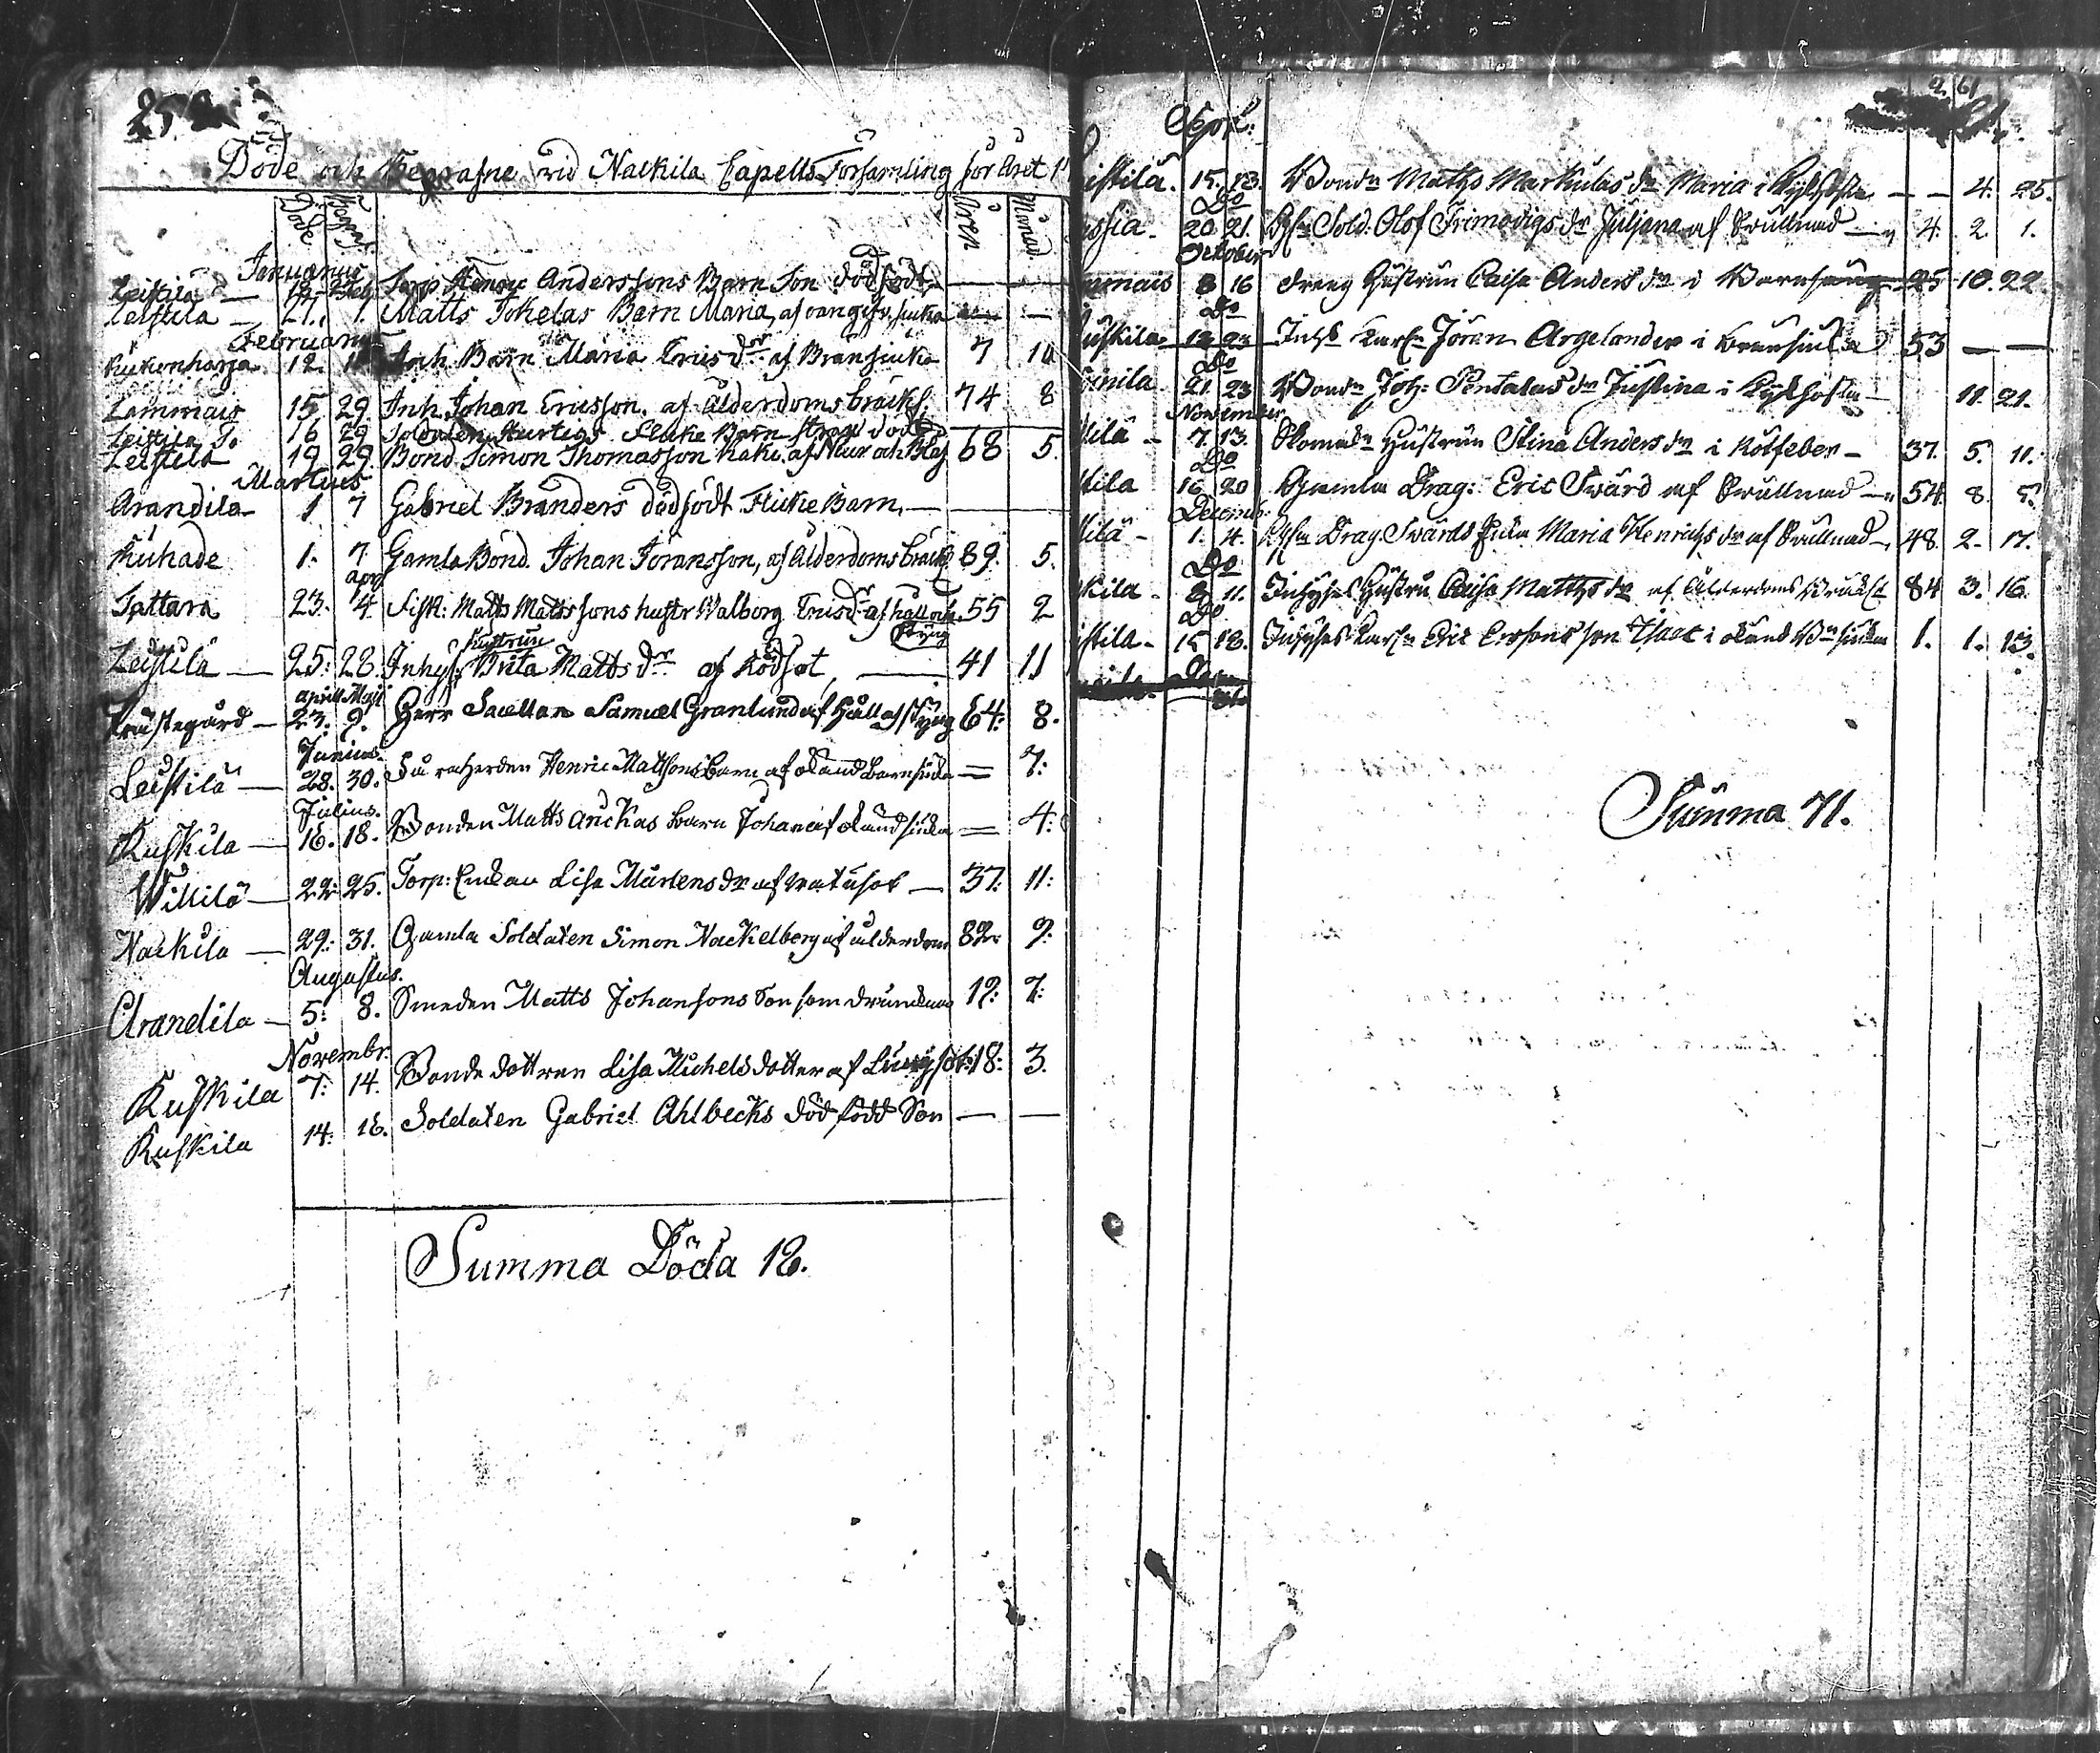 252
Döde och Begrafne vid Nackila Capells Församling för året 1
Döde Begraf: Åren Månad
Januarius
Leistila — 18 2 Feb Torp Henric Anderssons Barn Son dödfödt — —
Leistila — 21. 1. Matts Jokelas Barn Maria, af — —
Februarius
12. Barn Maria Ericsdr af Bränsiuka 7 10
Lammais 15 29 Inh. Johan Ericsson. af Ålderdoms bräckl: 74 8
Leistila To 16 29 Soldaten Hurtigs Flicke Barn strax död
Leistila 19 29. Bond. Simon Thomasson 68 5.
Martius
Arandila 1 7 Gabriel Branders dödfödt Flicke Barn, — —
Kuhade 1. 7 Gamla Bond. Johan Joransson, af Ålderdoms bräck: 89. 5.
apr
Tattara 23. 4 Fisk: Matts Mattssons hustr Walborg Ericsdr af håll och 55 2
Styng
hustrun
Leistila — 25: 28. Inhys: Brita Matts dr af Rödsot, — 41 11
april. Maji
Prästegård — 23. 9. Herr Sacellan Samuel Granlund af Håll och Styng 64: 8.
Junius.
Leistila — 28. 30. Henric Mattsons Barn af okänd Barnsiuka = 7:
Julius.
Ruskila — 16. 18. Bonden Matts Anckas barn Johan af okänd siuka = 4:
Willilä — 22: 25. Torp: Enckan Lisa Mårtens dr af vatusot — 37: 11:
Nackila — 29: 31. Gamla Soldaten Simon Nackelberg af ålderdom 82. 9:
Augustus.
Arandila — 5: 8. Smeden Matts Johansons Son som drunknade 12: 7:
Novembr.
Ruskila 7: 14. Bonde dottren Lisa Michels dotter af Lungsot: 18: 3.
Ruskila 14: 16. Soldaten Gabriel Ahlbecks död född Son — —
Summa Döda 18.
261
Sept:
istila. 15. 18. Bonden Matts Markulas dr Maria i Kykhosta — — 4. 25.
Do
assia — 20 21. Sold. Olof Trimovigs dr Juljana af Svullnad — 4. 2. 1.
October
mais 8 16 Dreng Hustrun Caisa Anders dr i Barnsäng 25 10. 22.
Do
uskila 19 23 Inhs Karln Jöran Argelander i Brensiuka 53 — —
Do
nila 21. 23 Bondn Joh: Pentalas dr Justina i Kykhosta — 11. 21.
November
tilä — 7. 13. Hustrun Stina Anders dr i Rötfeber — 37. 5. 11.
Do
tila 16 20 Gamla Drag: Eric Swärd af Svullnad — 54. 8. 5.
Decemb:
tilä — 1. 4. Drag. Swärds Enka Maria Henrichs dr af Svullnad — 48. 2. 17.
Do
kila — 8 11. Inhyses Hustru Caisa Matts dr af Ålderdoms Bräckl 84 3. 16
Do
stila — 15 18. Inhyses Karln Eric Ersons son Isaac i okänd Barnsiuka 1. 1. 13.
Summa 71.